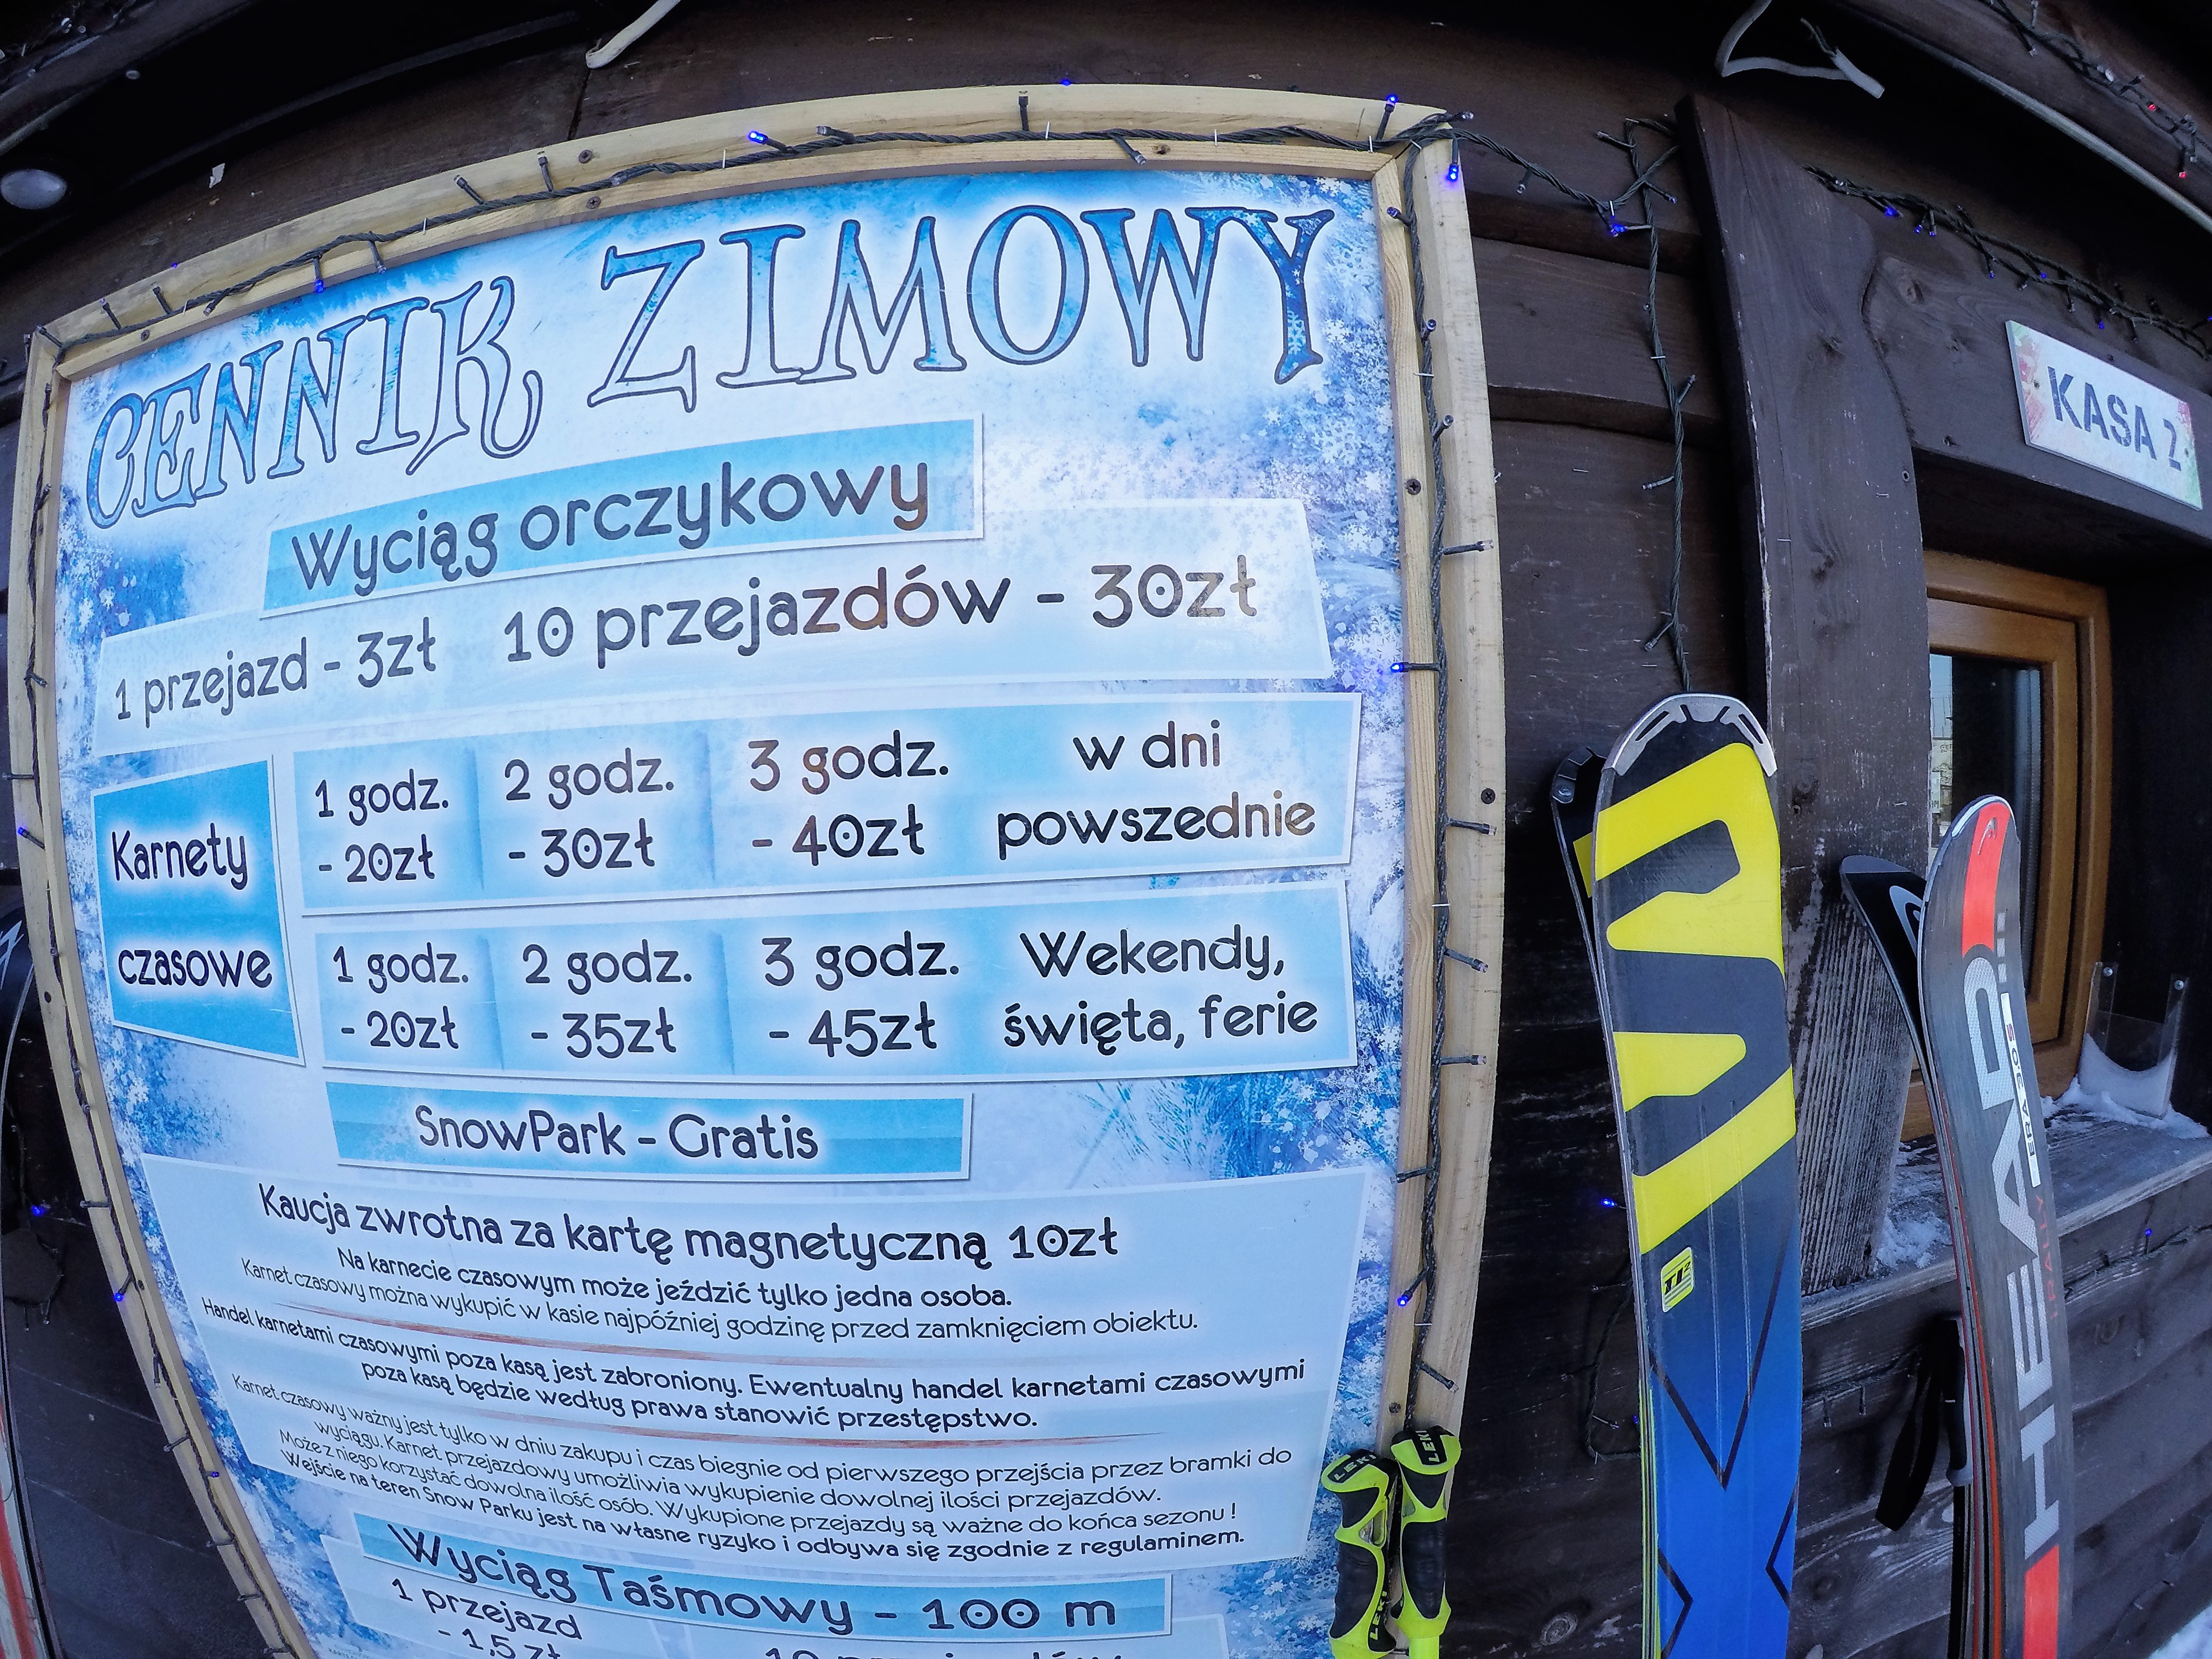 CENNIK ZIMOWY
Wyciąg orczykowy
1 przejazd - 3zł 10 przejazdów - 30zł
Karnety
czasowe
1 godz. 2 godz. 3 godz. w dni
- 20zł - 30zł - 40zł powszednie
1 godz. 2 godz. 3 godz. Wekendy,
- 20zł - 35zł - 45zł święta, ferie
SnowPark - Gratis
Kaucja zwrotna za kartę magnetyczną 10zł
Na karnecie czasowym może jeździć tylko jedna osoba.
Karnet czasowy można wykupić w kasie najpóźniej godzinę przed zamknięciem obiektu.
Handel karnetami czasowymi poza kasą jest zabroniony. Ewentualny handel karnetami czasowymi
poza kasą będzie według prawa stanowić przestępstwo.
Karnet czasowy ważny jest tylko w dniu zakupu i czas biegnie od pierwszego przejścia przez bramki do
wyciągu. Karnet przejazdowy umożliwia wykupienie dowolnej ilości przejazdów.
Może z niego korzystać dowolna ilość osób. Wykupione przejazdy są ważne do końca sezonu !
Wejście na teren Snow Parku jest na własne ryzyko i odbywa się zgodnie z regulaminem.
Wyciąg Taśmowy - 100 m
1 przejazd
- 1,5 zł
10 przejazdów
KASA 2
HEAD
LEKI
LEKI
LEKI